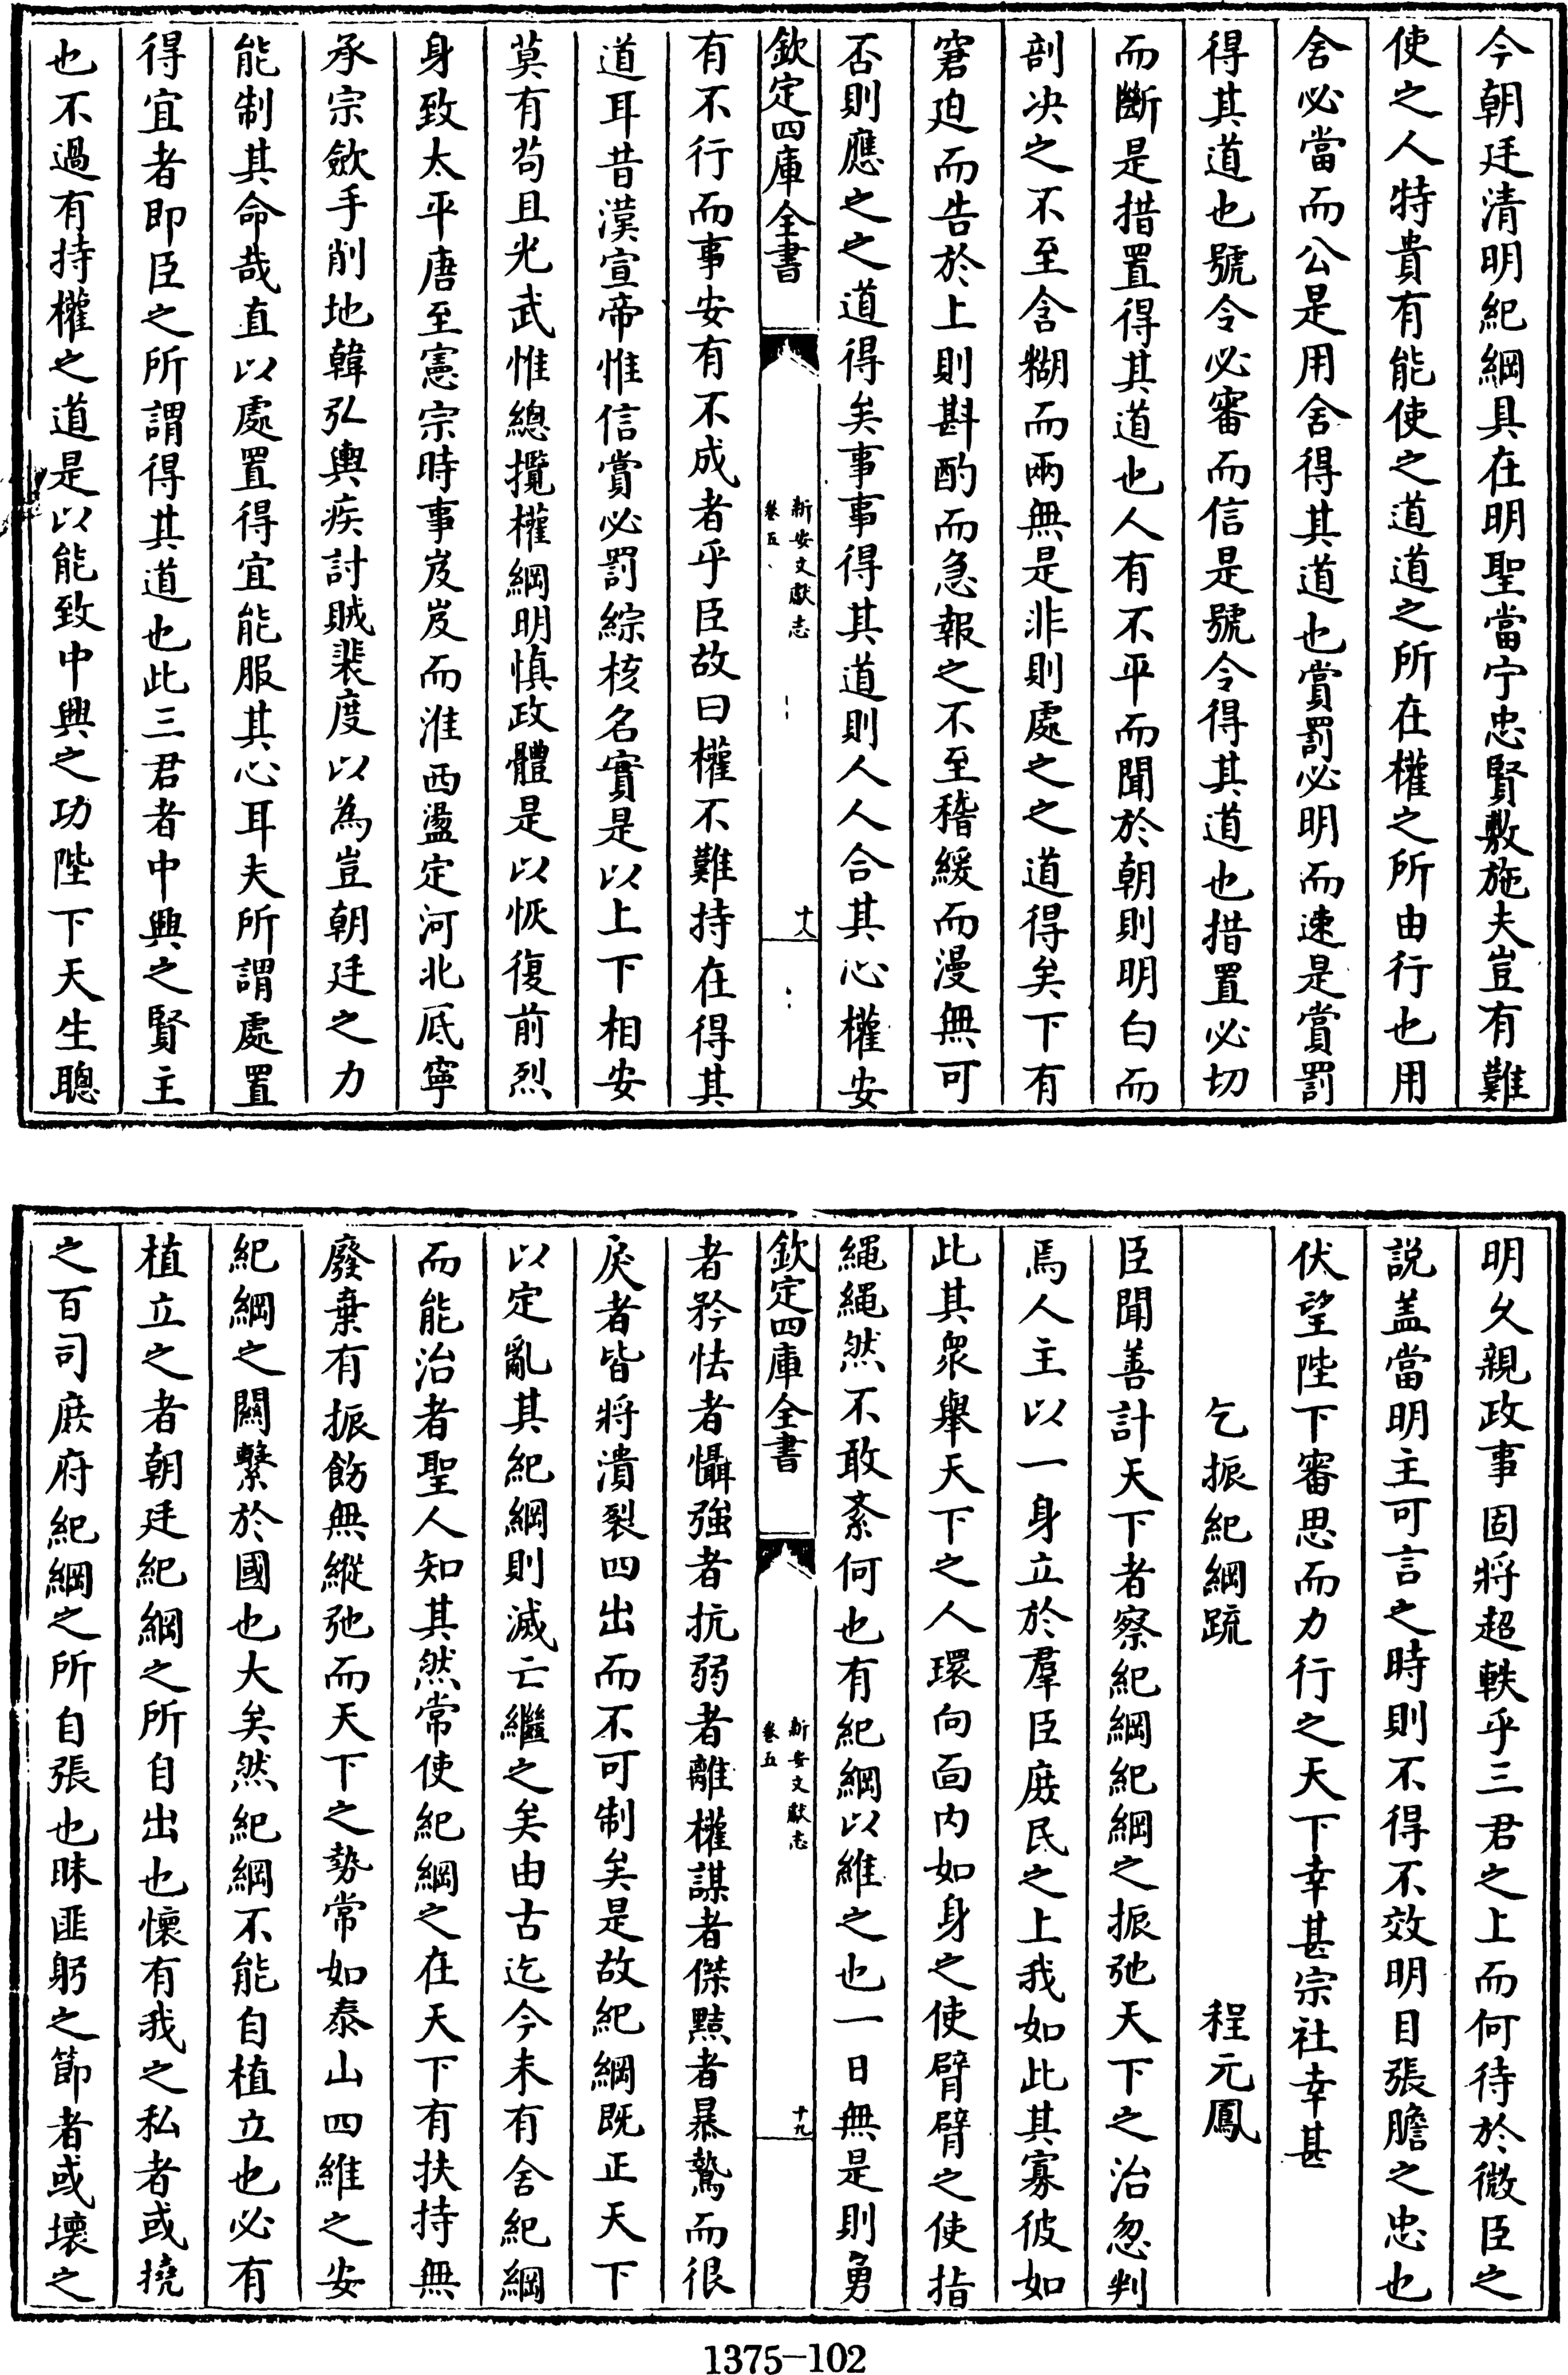 今朝廷清明紀綱具在明聖當宁忠賢敷施夫豈有難
使之人特貴有能使之道道之所在權之所由行也用
舍必當而公是用舍得其道也賞罰必明而速是賞罰
得其道也號令必審而信是號令得其道也措置必切
而斷是措置得其道也人有不平而聞於朝則明白而
剖决之不至含糊而兩無是非則處之之道得矣下有
窘迫而告於上則斟酌而急報之不至稽緩而漫無可
否則應之之道得矣事事得其道則人人合其心權安
欽定四庫全書
新安文獻志
卷五
十八
有不行而事安有不成者乎臣故曰權不難持在得其
道耳昔漢宣帝惟信賞必罰綜核名實是以上下相安
莫有苟且光武惟總攬權綱明慎政體是以恢復前烈
身致太平唐至憲宗時事岌岌而淮西盪定河北底寧
承宗斂手削地韓弘輿疾討賊裴度以為豈朝廷之力
能制其命哉直以處置得宜能服其心耳夫所謂處置
得宜者即臣之所謂得其道也此三君者中興之賢主
也不過有持權之道是以能致中興之功陛下天生聰
明久親政事固將超軼乎三君之上而何待於微臣之
説盖當明主可言之時則不得不效明目張膽之忠也
伏望陛下審思而力行之天下幸甚宗社幸甚
乞振紀綱疏 程元鳳
臣聞善計天下者察紀綱紀綱之振弛天下之治忽判
焉人主以一身立於羣臣庶民之上我如此其寡彼如
此其衆舉天下之人環向面内如身之使臂臂之使指
繩繩然不敢紊何也有紀綱以維之也一日無是則勇
欽定四庫全書
新安文獻志
卷五
十九
者矜怯者懾強者抗弱者離權謀者傑黠者暴鷙而很
戾者皆將潰裂四出而不可制矣是故紀綱既正天下
以定亂其紀綱則滅亡繼之矣由古迄今未有舍紀綱
而能治者聖人知其然常使紀綱之在天下有扶持無
廢棄有振飭無縱弛而天下之勢常如泰山四維之安
紀綱之關繫於國也大矣然紀綱不能自植立也必有
植立之者朝廷紀綱之所自出也懷有我之私者或撓
之百司庶府紀綱之所自張也昧匪躬之節者或壞之
1375-102